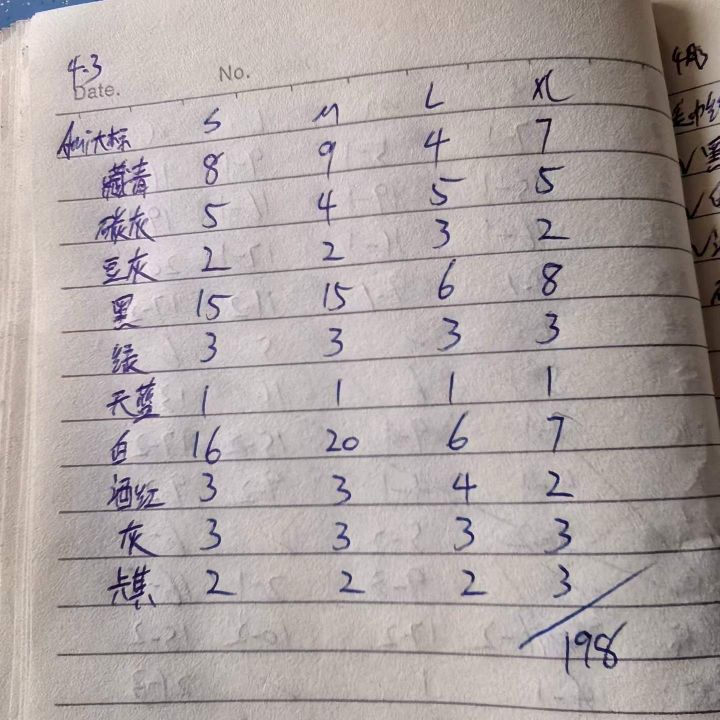 4-3
Date. No.
S M L XL
Ami大标
藏青 8 9 4 7
碳灰 5 4 5 5
豆灰 2 2 3 2
黑 15 15 6 8
绿 3 3 3 3
天蓝 1 1 1 1
白 16 20 6 7
酒红 3 3 4 2
灰 3 3 3 3
卡其 2 2 2 3
198